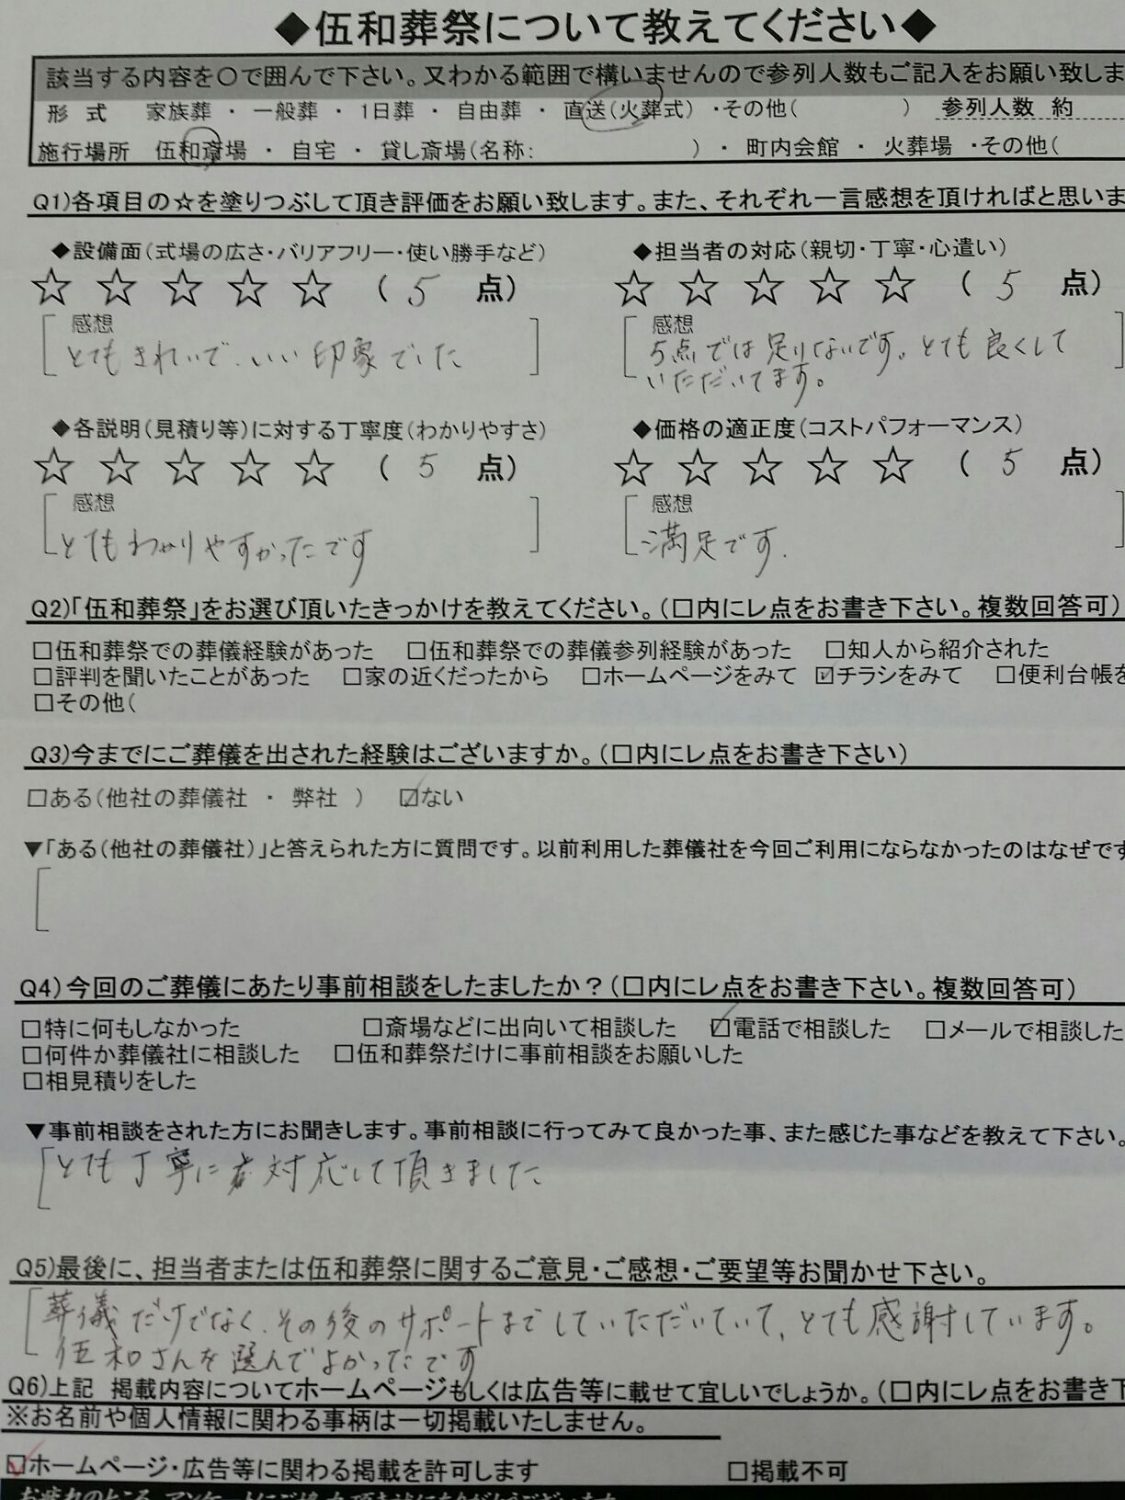 ◆伍和葬祭について教えてください◆
該当する内容を○で囲んで下さい。又わかる範囲で構いませんので参列人数もご記入をお願い致しま
形 式 家族葬 ・ 一般葬 ・ 1日葬 ・ 自由葬 ・ 直送(火葬式) ・その他( ) 参列人数 約
施行場所 伍和斎場 ・ 自宅 ・ 貸し斎場(名称: ) ・ 町内会館 ・ 火葬場 ・その他(
Q1)各項目の☆を塗りつぶして頂き評価をお願い致します。また、それぞれ一言感想を頂ければと思いま
◆設備面(式場の広さ・バリアフリー・使い勝手など)
☆ ☆ ☆ ☆ ☆ ( 5 点)
感想
とてもきれいで、いい印象でした
◆担当者の対応(親切・丁寧・心遣い)
☆ ☆ ☆ ☆ ☆ ( 5 点)
感想
5点では足りないです。とても良くして
いただいてます。
◆各説明(見積り等)に対する丁寧度(わかりやすさ)
☆ ☆ ☆ ☆ ☆ ( 5 点)
感想
とてもわかりやすかったです
◆価格の適正度(コストパフォーマンス)
☆ ☆ ☆ ☆ ☆ ( 5 点)
感想
満足です.
Q2)「伍和葬祭」をお選び頂いたきっかけを教えてください。(□内にレ点をお書き下さい。複数回答可)
□伍和葬祭での葬儀経験があった □伍和葬祭での葬儀参列経験があった □知人から紹介された
□評判を聞いたことがあった □家の近くだったから □ホームページをみて ☑チラシをみて □便利台帳を
□その他(
Q3)今までにご葬儀を出された経験はございますか。(□内にレ点をお書き下さい)
□ある(他社の葬儀社 ・ 弊社 ) ☑ない
▼「ある(他社の葬儀社)」と答えられた方に質問です。以前利用した葬儀社を今回ご利用にならなかったのはなぜです
Q4)今回のご葬儀にあたり事前相談をしましたか?(□内にレ点をお書き下さい。複数回答可)
□特に何もしなかった □斎場などに出向いて相談した ☑電話で相談した □メールで相談した
□何件か葬儀社に相談した □伍和葬祭だけに事前相談をお願いした
□相見積りをした
▼事前相談をされた方にお聞きします。事前相談に行ってみて良かった事、また感じた事などを教えて下さい。
とても丁寧に対応して頂きました
Q5)最後に、担当者または伍和葬祭に関するご意見・ご感想・ご要望等お聞かせ下さい。
葬儀だけでなく、その後のサポートまでしていただいていて、とても感謝しています。
伍和さんを選んでよかったです
Q6)上記 掲載内容についてホームページもしくは広告等に載せて宜しいでしょうか。(□内にレ点をお書き下
※お名前や個人情報に関わる事柄は一切掲載いたしません。
☑ホームページ・広告等に関わる掲載を許可します □掲載不可